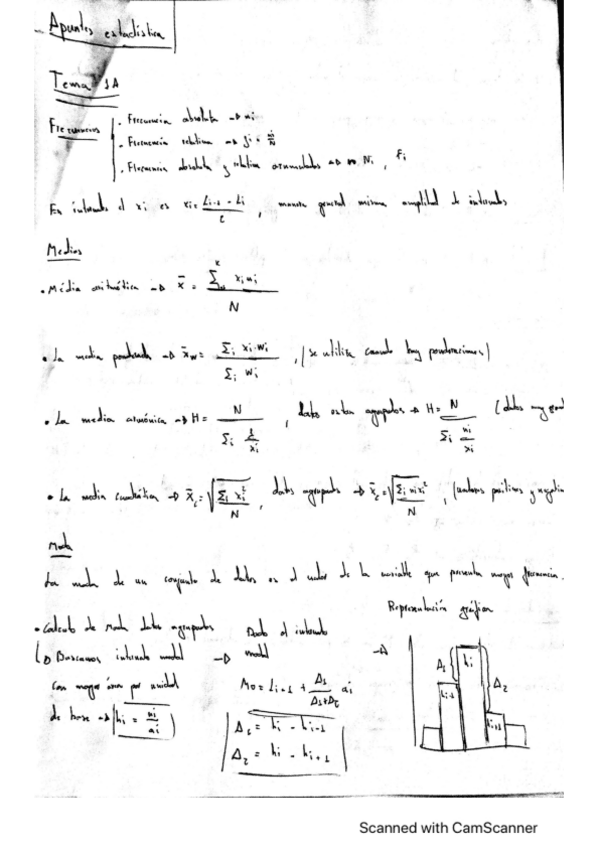 Apuntes estadística
Tema 1A
Frecuencias
. Frecuencia absoluta → ni
. Frecuencia relativa → fi = ni/N
. Frecuencia absoluta y relativa acumuladas → Ni, Fi
En intervalos el xi es xi = Li-1 - Li / 2, manera general misma amplitud de intervalos
Medias
• Média aritmética → x̄ = Σ xi ni / N
• La media ponderada → x̄w = Σi xi·wi / Σi wi, (se utiliza cuando hay ponderaciones)
• La media armónica → H = N / Σi 1/xi, datos estan agrupados → H = N / Σi ni/xi (datos muy
• La media cuadrática → x̄c = √Σi xi² / N, datos agrupados → x̄c = √Σi ni xi² / N, (valores positivos y
Moda
La moda de un conjunto de datos es el valor de la variable que presenta mayor frecuencia.
Representación gráfica
• Calculo de Moda datos agrupados
Buscamos intervalo modal → con mayor área por unidad de base → hi = ni/ai
Dado el intervalo modal →
Mo = Li-1 + Δ1 / Δ1+Δ2 ai
Δ1 = hi - hi-1
Δ2 = hi - hi+1
Δ1 hi Δ2
hi-1 hi+1
Scanned with CamScanner